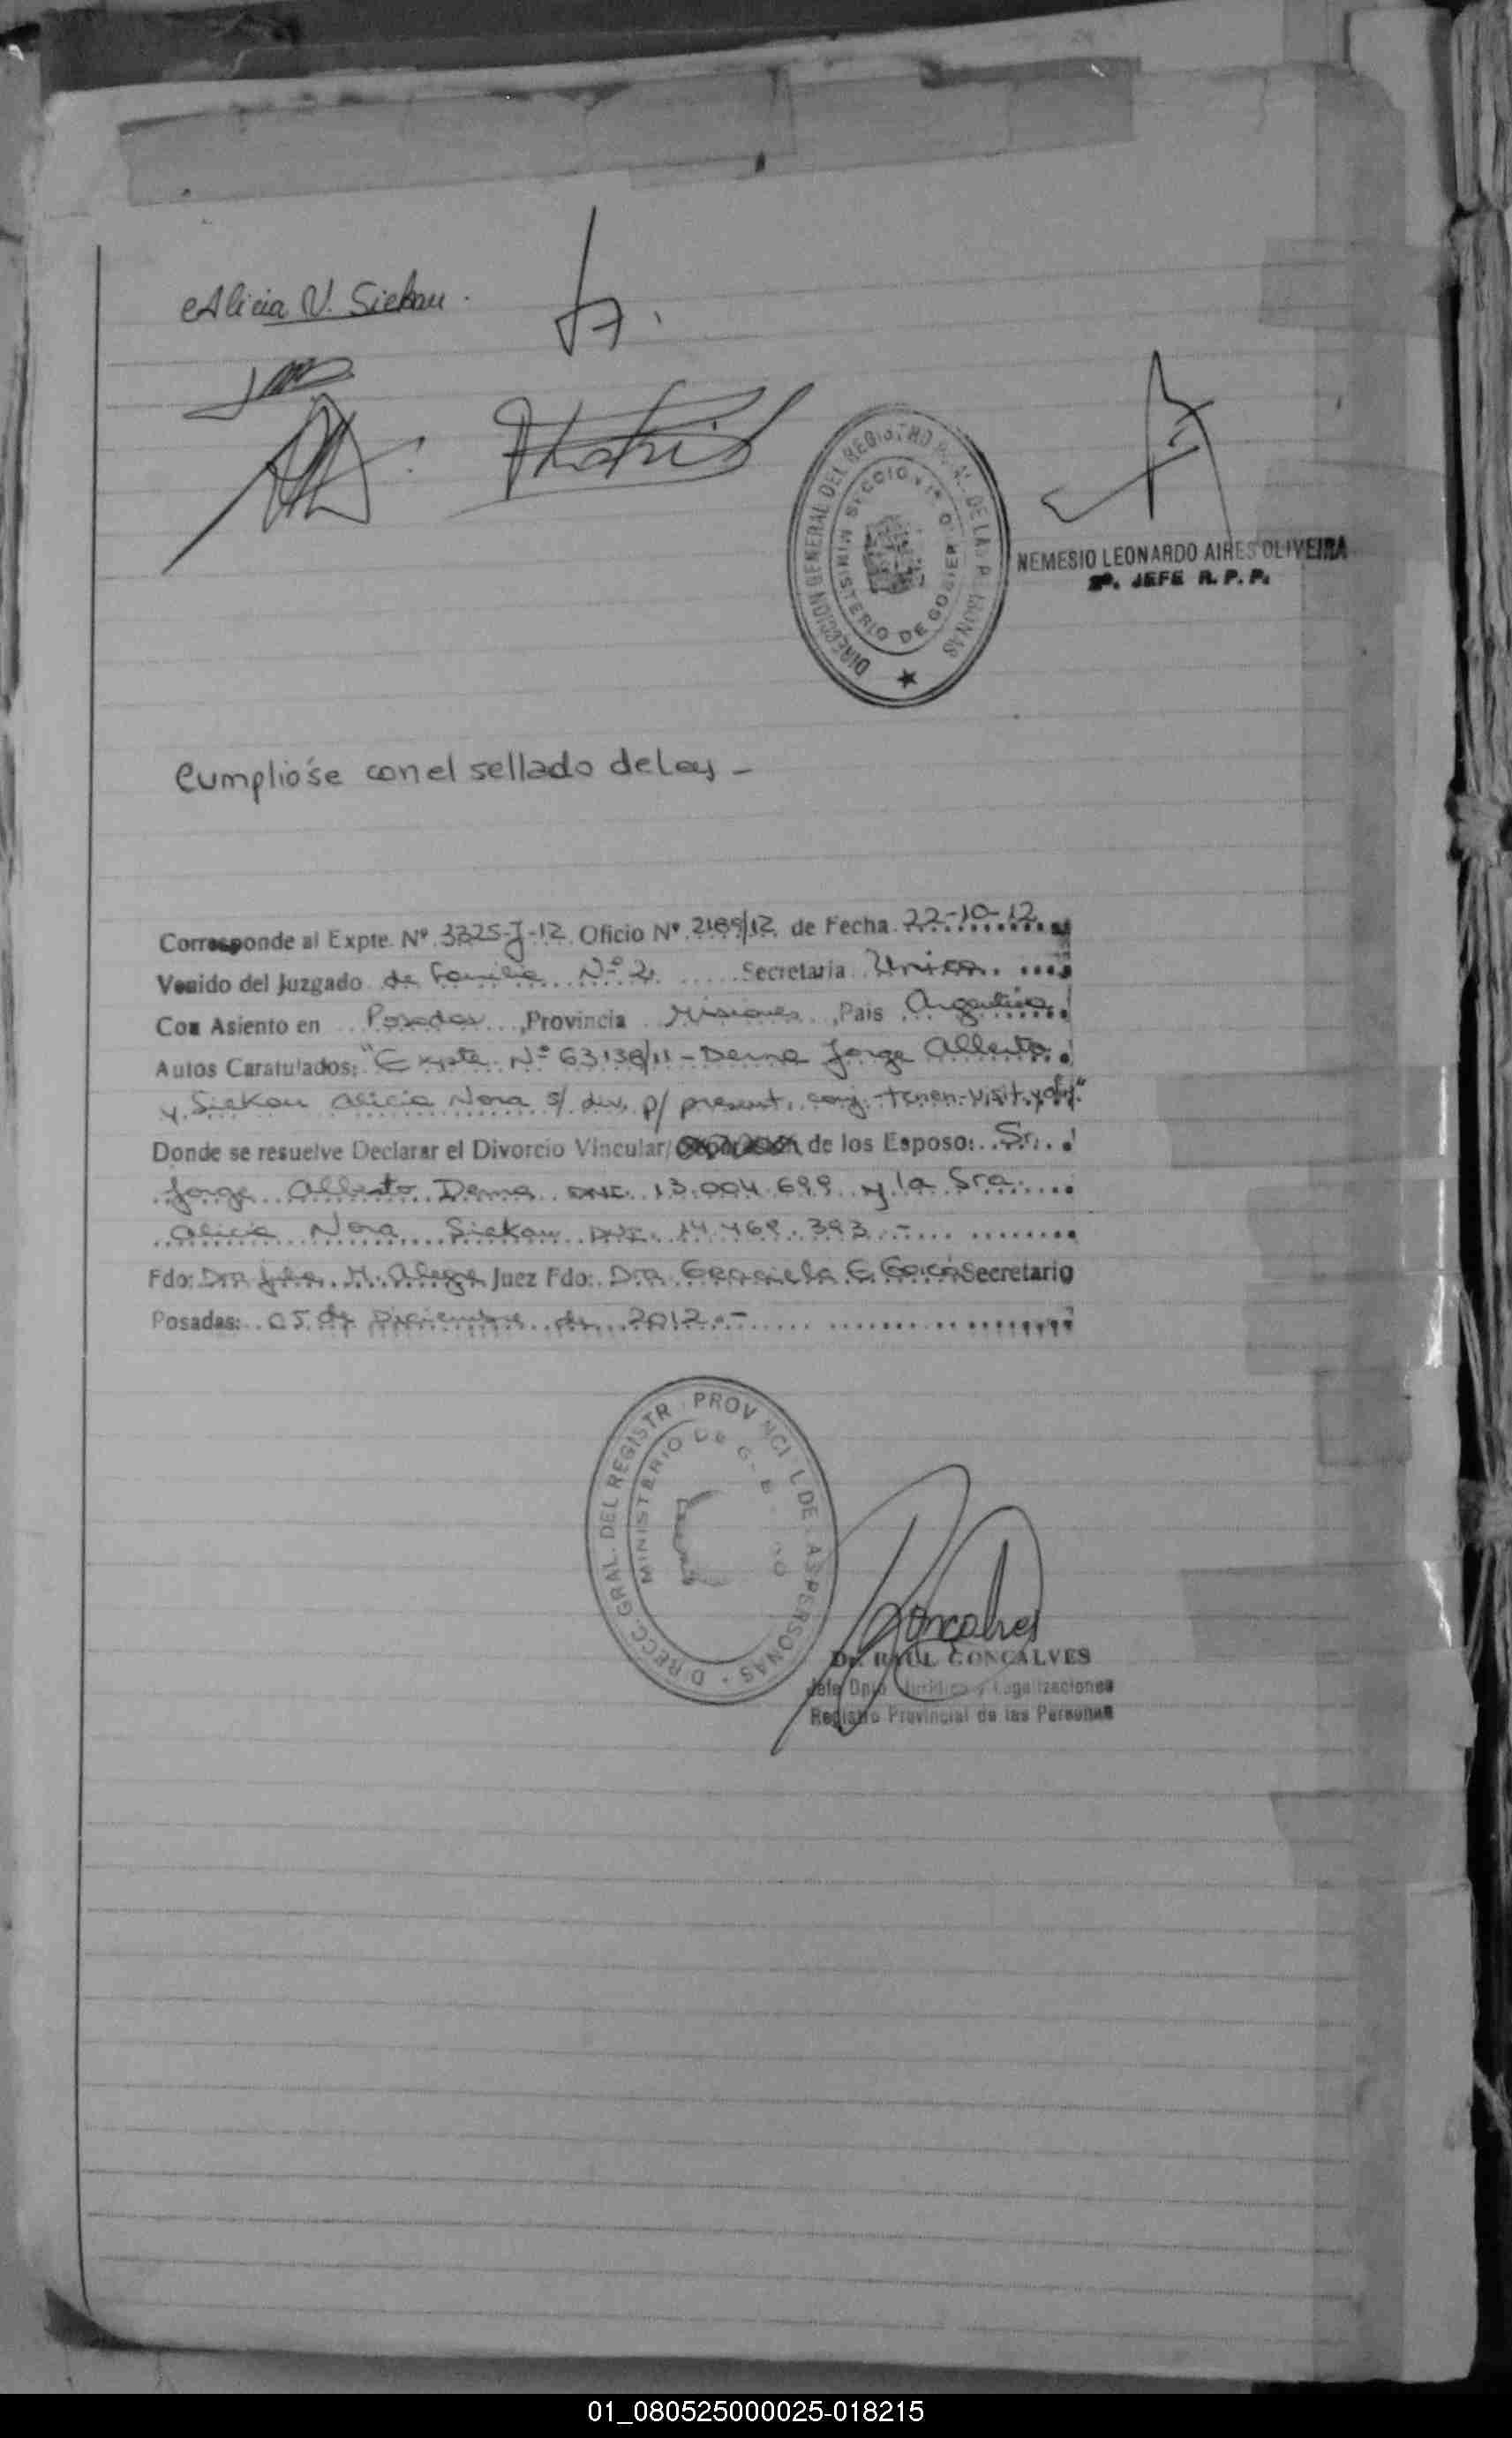 Alicia N. Siekau.
DIRECCION GENERAL DEL REGISTRO DE LAS PERSONAS
MINISTERIO DE GOBIER
NEMESIO LEONARDO AIRES OLIVEIRA
JEFE R. P. P.
Cumplióse con el sellado de Ley -
Corresponde al Expte. Nº 3225-J-12 Oficio Nº 2189/12 de Fecha 22-10-12
Venido del Juzgado de Familia Nº 2 Secretaria Unica
Con Asiento en Posadas, Provincia Misiones, Pais Argentina
Autos Caratulados: "Expte. Nº 63138/11 - Dema Jorge Alberto
y Siekau Alicia Nora s/ div. p/ present. conj. tenen. visit. y
Donde se resuelve Declarar el Divorcio Vincular/ de los Esposo: Sr.
Jorge Alberto Dema DNI. 13.004.699 y la Sra.
Alicia Nora Siekau DNI. 14.469.393.-
Fdo: Dra H. Juez Fdo: Dra Graciela E. Secretario
Posadas: 05 de Diciembre de 2012.-
DIRECC. GRAL. DEL REGISTR PROVINCIAL DE LAS PERSONAS
MINISTERIO DE
Dr. RAUL GONCALVES
Jefe Dpto Juridico y Legalizaciones
Registro Provincial de las Personas
01_080525000025-018215